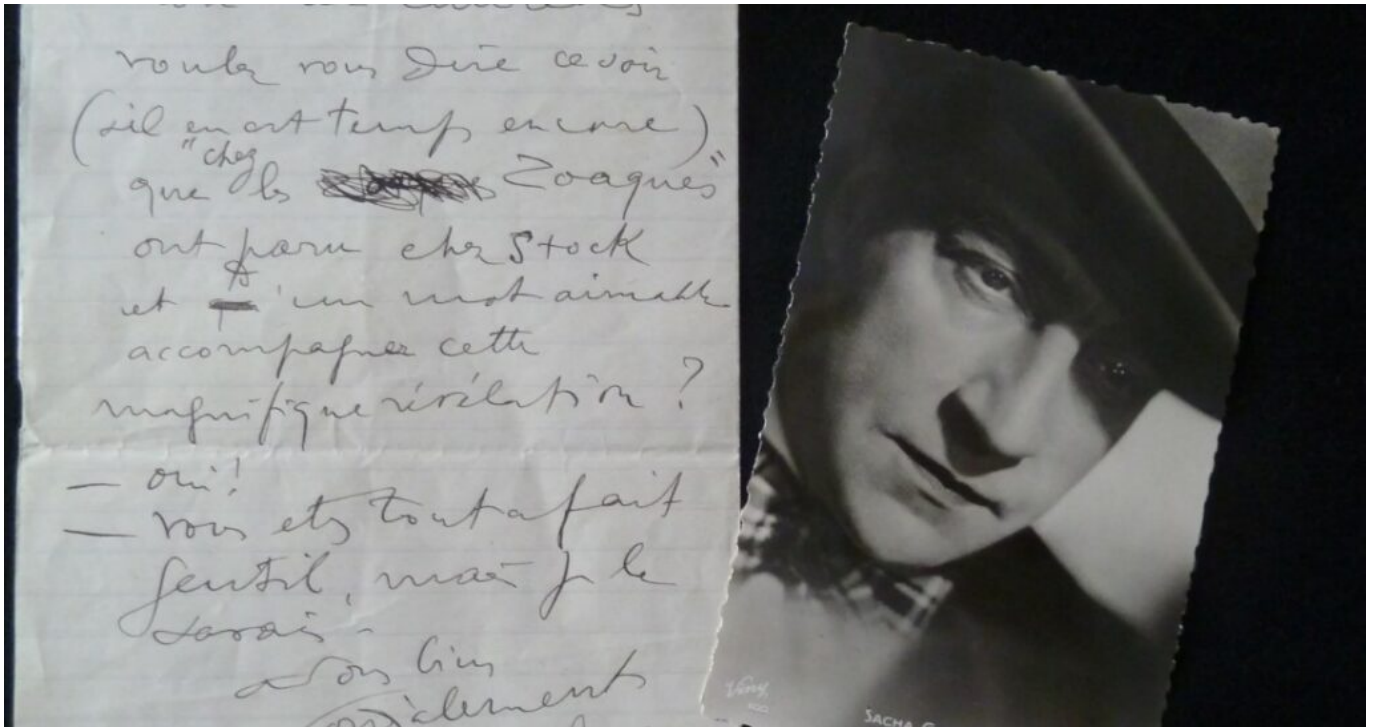 voulez vous dire ce soir
(s'il en est temps encore)
que "chez les Zoaques"
ont paru chez Stock
et qu'un mot aimable
accompagner cette
magnifique révélation ?
— oui !
— vous etes tout a fait
gentil, mais je le
savais -
a vous bien
cordialement
Viny
SACHA G